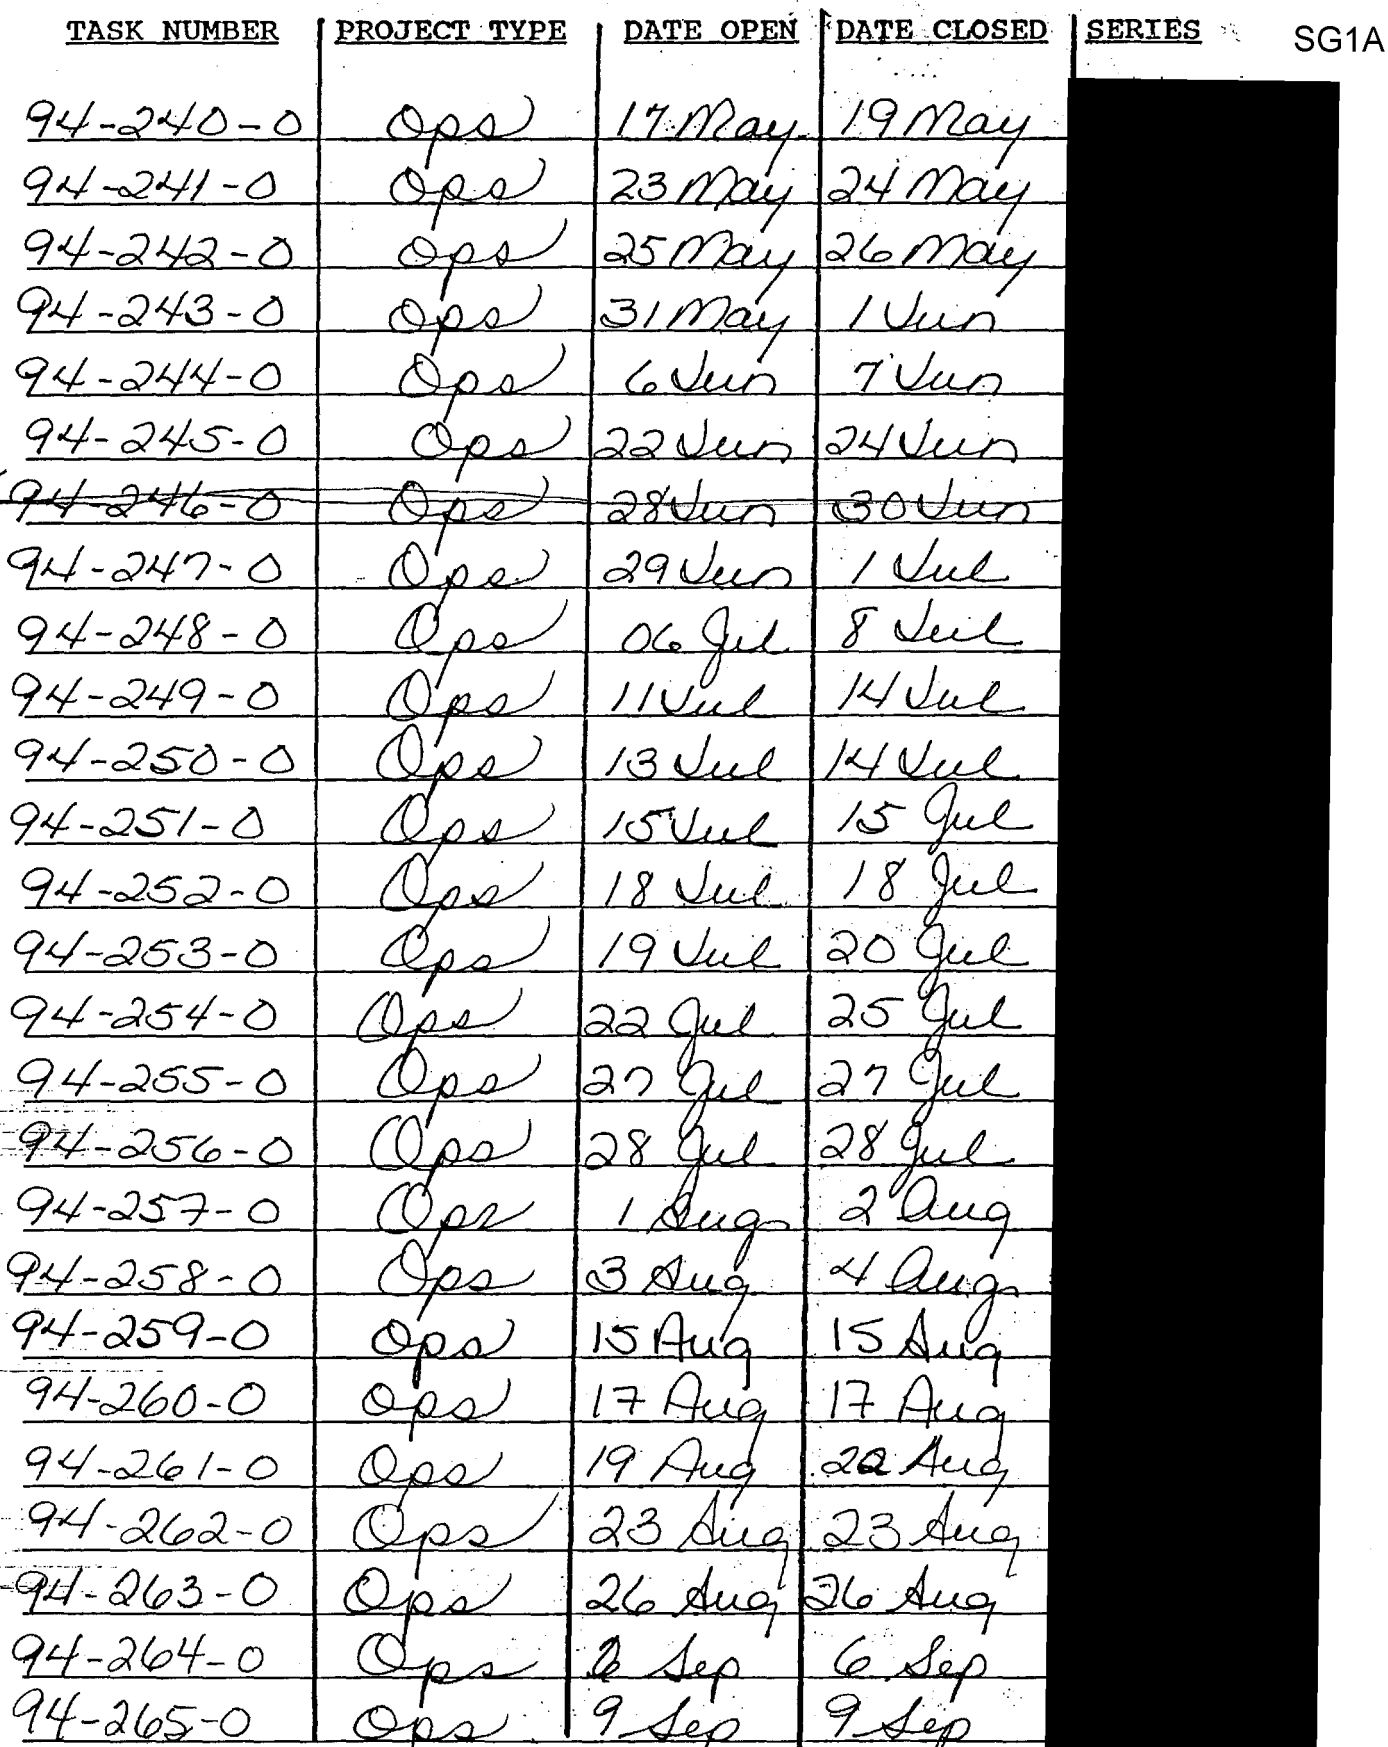 TASK NUMBER PROJECT TYPE DATE OPEN DATE CLOSED SERIES SG1A
94-240-0 Ops 17 May 19 May
94-241-0 Ops 23 May 24 May
94-242-0 Ops 25 May 26 May
94-243-0 Ops 31 May 1 Jun
94-244-0 Ops 6 Jun 7 Jun
94-245-0 Ops 22 Jun 24 Jun
94-246-0 Ops 28 Jun 30 Jun
94-247-0 Ops 29 Jun 1 Jul
94-248-0 Ops 06 Jul 8 Jul
94-249-0 Ops 11 Jul 14 Jul
94-250-0 Ops 13 Jul 14 Jul
94-251-0 Ops 15 Jul 15 Jul
94-252-0 Ops 18 Jul 18 Jul
94-253-0 Ops 19 Jul 20 Jul
94-254-0 Ops 22 Jul 25 Jul
94-255-0 Ops 27 Jul 27 Jul
94-256-0 Ops 28 Jul 28 Jul
94-257-0 Ops 1 Aug 2 Aug
94-258-0 Ops 3 Aug 4 Aug
94-259-0 Ops 15 Aug 15 Aug
94-260-0 Ops 17 Aug 17 Aug
94-261-0 Ops 19 Aug 22 Aug
94-262-0 Ops 23 Aug 23 Aug
94-263-0 Ops 26 Aug 26 Aug
94-264-0 Ops Sep 6 Sep
94-265-0 Ops 9 Sep 9 Sep